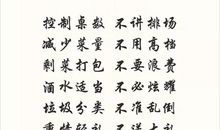 控制桌数 不讲排场
减少菜量 不用高档
剩菜打包 不要浪费
酒水适当 不必炫耀
垃圾分类 不准乱倒